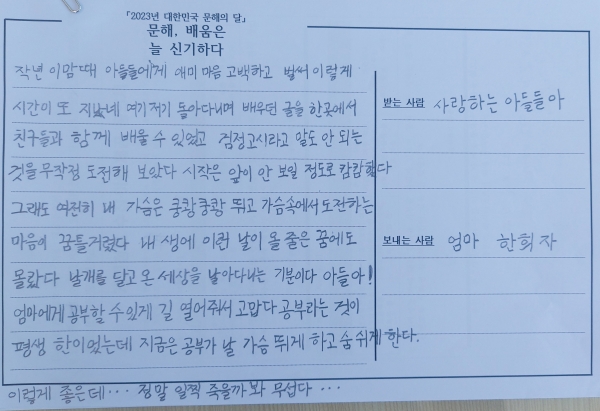 「2023년 대한민국 문해의 달」
문해, 배움은
늘 신기하다
작년 이맘때 아들들에게 애미 마음 고백하고 벌써 이렇게
시간이 또 지났네 여기저기 돌아다니며 배우던 글을 한곳에서
친구들과 함께 배울 수 있었고 검정고시라고 말도 안 되는
것을 무작정 도전해 보았다 시작은 앞이 안 보일 정도로 캄캄했다
그래도 여전히 내 가슴은 쿵쾅쿵쾅 뛰고 가슴속에서 도전하는
마음이 꿈틀거렸다 내 생에 이런 날이 올 줄은 꿈에도
몰랐다 날개를 달고 온 세상을 날아다니는 기분이다 아들아!
엄마에게 공부할 수 있게 길 열어줘서 고맙다 공부라는 것이
평생 한이었는데 지금은 공부가 날 가슴 뛰게 하고 숨 쉬게 한다.
이렇게 좋은데... 정말 일찍 죽을까 봐 무섭다 ...
받는 사람 사랑하는 아들들아
보내는 사람 엄마 한희자